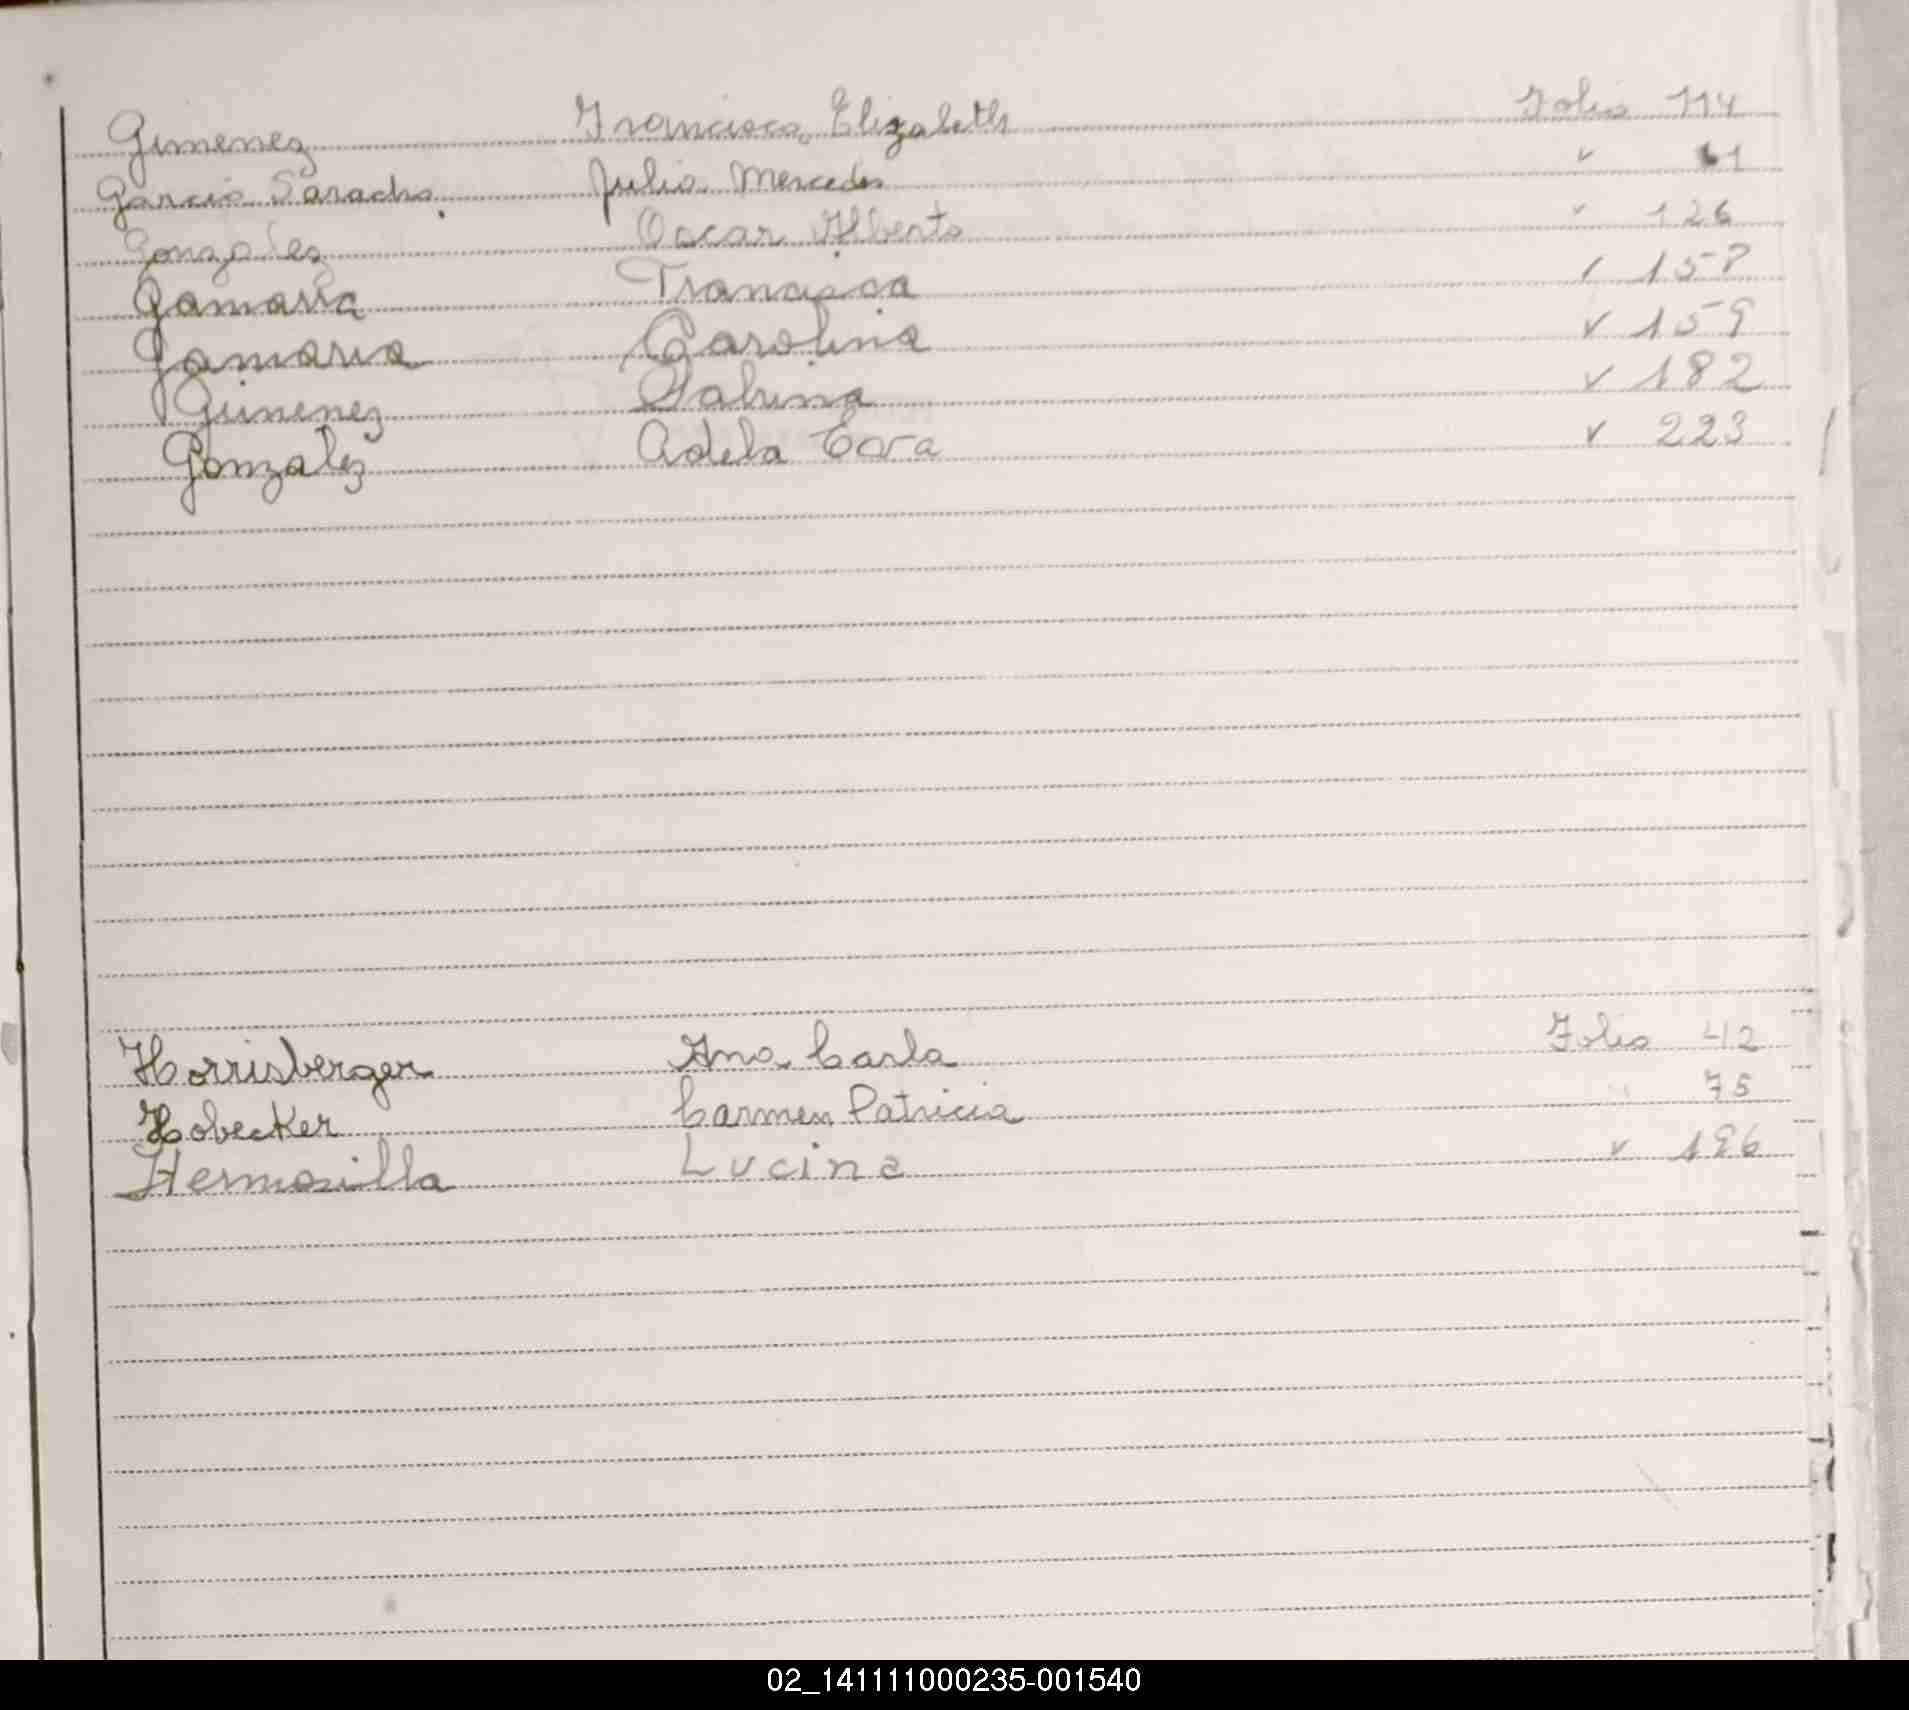 Gimenez Francisca Elizabeth Folio 114
Garcia Saracho Julia Mercedes v 61
Gonzalez Oscar Alberto v 126
Gamarra Francisca v 158
Gamarra Carolina v 159
Gimenez Sabrina v 182
Gonzalez Adela Eva v 223
Horrisberger Ana Carla Folio 42
Hobecker Carmen Patricia " 75
Hermosilla Lucina v 186
02_141111000235-001540